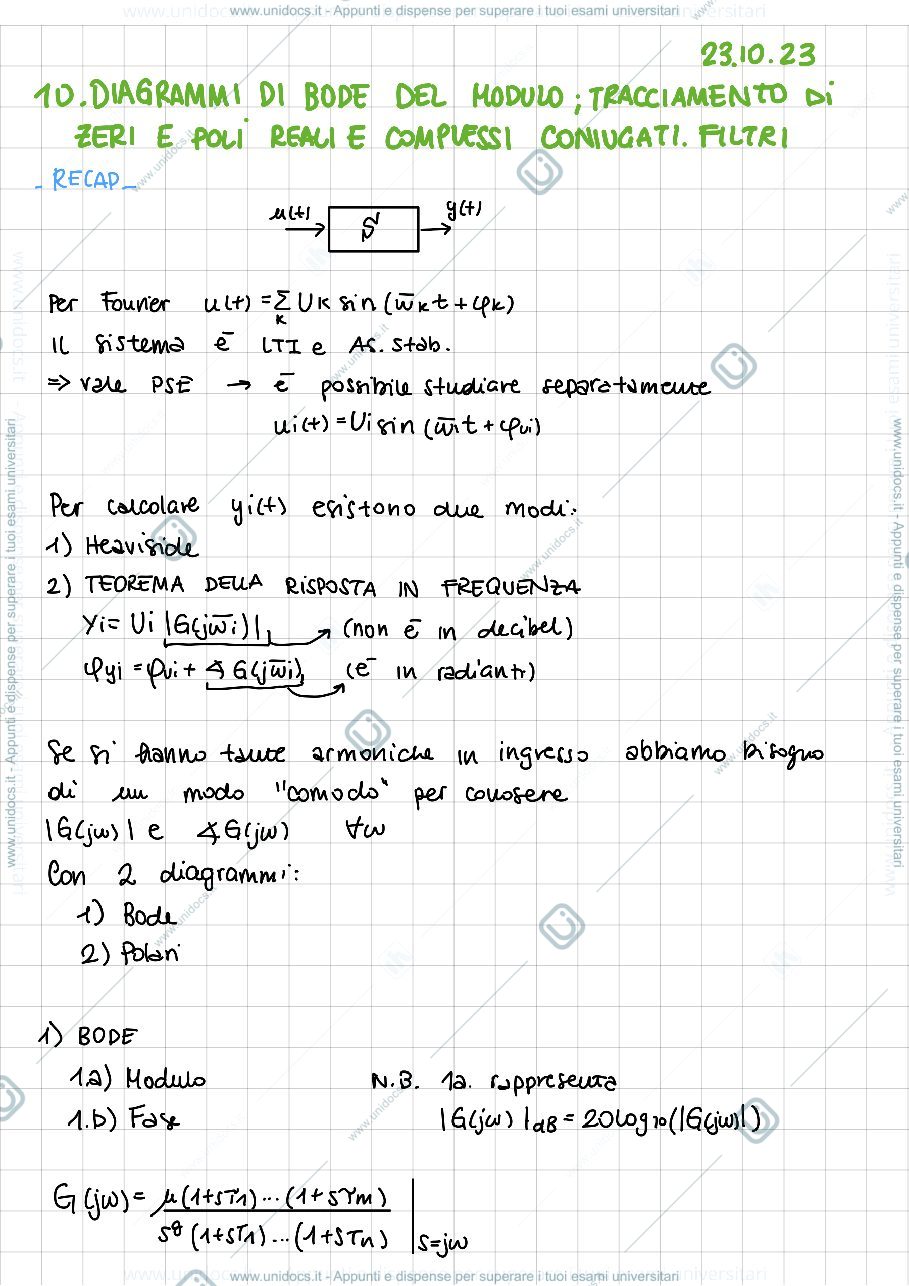 www.unidocs.it - Appunti e dispense per superare i tuoi esami universitari
23.10.23
10. DIAGRAMMI DI BODE DEL MODULO; TRACCIAMENTO DI
ZERI E POLI REALI E COMPLESSI CONIUGATI. FILTRI
- RECAP -
u(t) S y(t)
Per Fourier u(t) = Σ_k Uk sin (ω̄k t + φk)
Il sistema è LTI e As. Stab.
=> vale PSE → è possibile studiare separatamente
ui(t) = Ui sin (ω̄i t + φui)
Per calcolare yi(t) esistono due modi:
1) Heaviside
2) TEOREMA DELLA RISPOSTA IN FREQUENZA
Yi = Ui |G(jω̄i)| → (non è in decibel)
φyi = φui + ∢ G(jω̄i) → (è in radianti)
Se si hanno tante armoniche in ingresso abbiamo bisogno
di un modo "comodo" per conosere
|G(jω)| e ∢G(jω) ∀ω
Con 2 diagrammi:
1) Bode
2) Polari
1) BODE
1.a) Modulo N.B. 1a. rappresenta
1.b) Fase |G(jω)|dB = 20log10(|G(jω)|)
G(jω) = μ(1+sT1)...(1+sτm) / s^g (1+sT1)...(1+sTn) |s=jω
www.unidocs.it - Appunti e dispense per superare i tuoi esami universitari